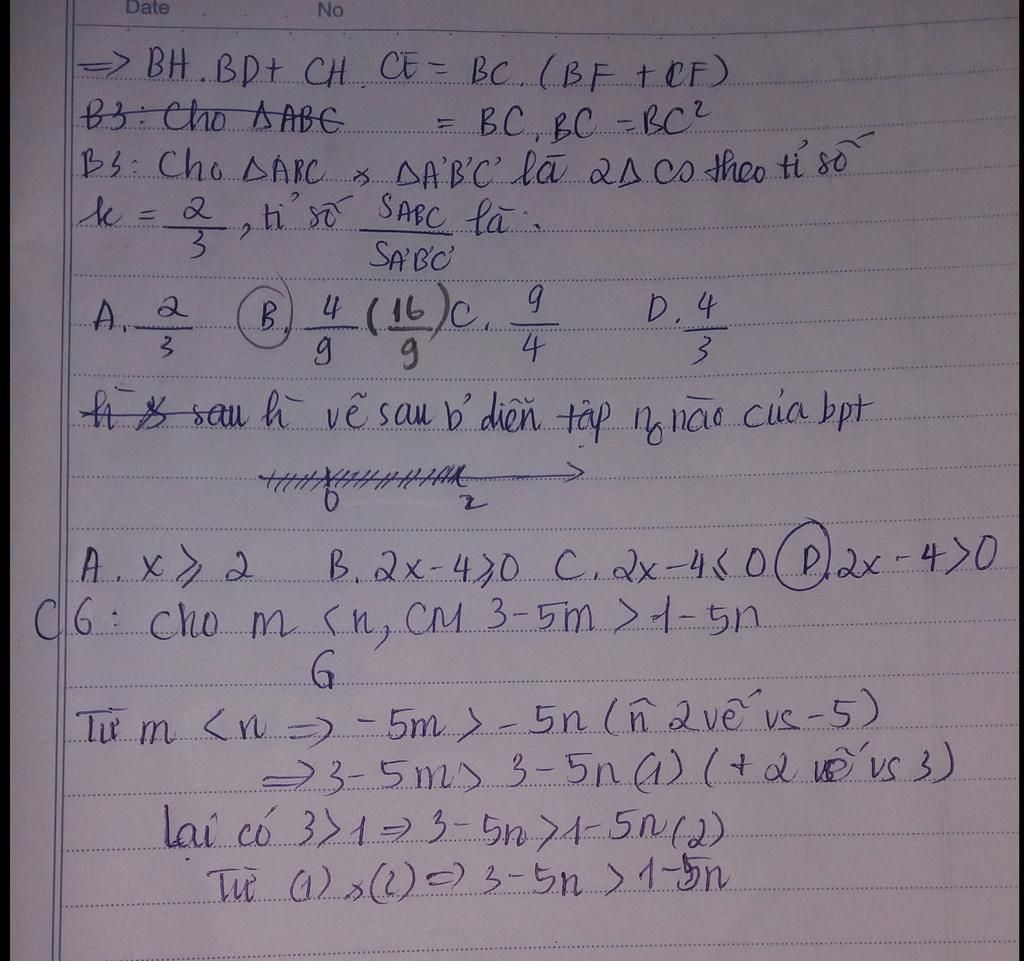 Date No
=> BH.BD + CH.CE = BC.(BF + CF)
B3: Cho ΔABC = BC.BC = BC²
B3: Cho ΔABC ΔA'B'C' là 2Δ co theo tỉ số
k = 2/3, tỉ số SABC/SA'B'C' là:
A. 2/3 B. 4/9 (16/9) C. 9/4 D. 4/3
sau hì vẽ sau b' diễn tập nᵒ nào của bpt
0 2
A. x ≥ 2 B. 2x-4≥0 C. 2x-4≤0 D. 2x-4>0
C6: cho m < n, CM 3-5m > 1-5n
G
Từ m < n => -5m > -5n (n̄ 2 vế vs -5)
=> 3-5m > 3-5n (1) (+ 2 vế vs 3)
Lại có 3>1 => 3-5n > 1-5n (2)
Từ (1) (2) => 3-5n > 1-5n